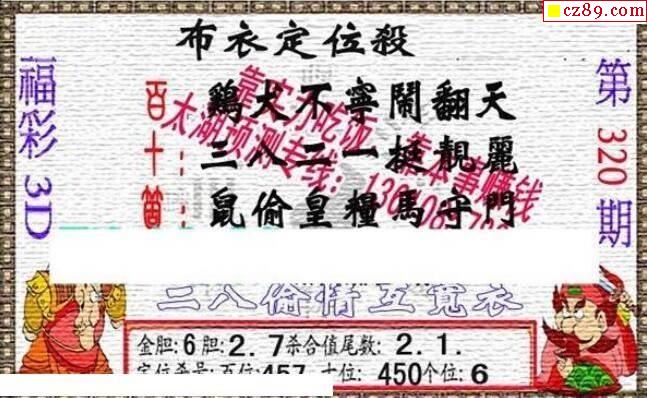 cz89.com
布衣定位殺
福彩3D
第320期
百：鷄犬不寧鬧翻天
十：三八二一挺靚麗
鼠偷皇糧馬守門
靠实力吃饭 靠本事赚钱
太湖预测专线：
二八偷情互寬衣
金胆:6胆:2.7杀合值尾数: 2.1.
定位杀号:百位:457 十位: 450个位:6